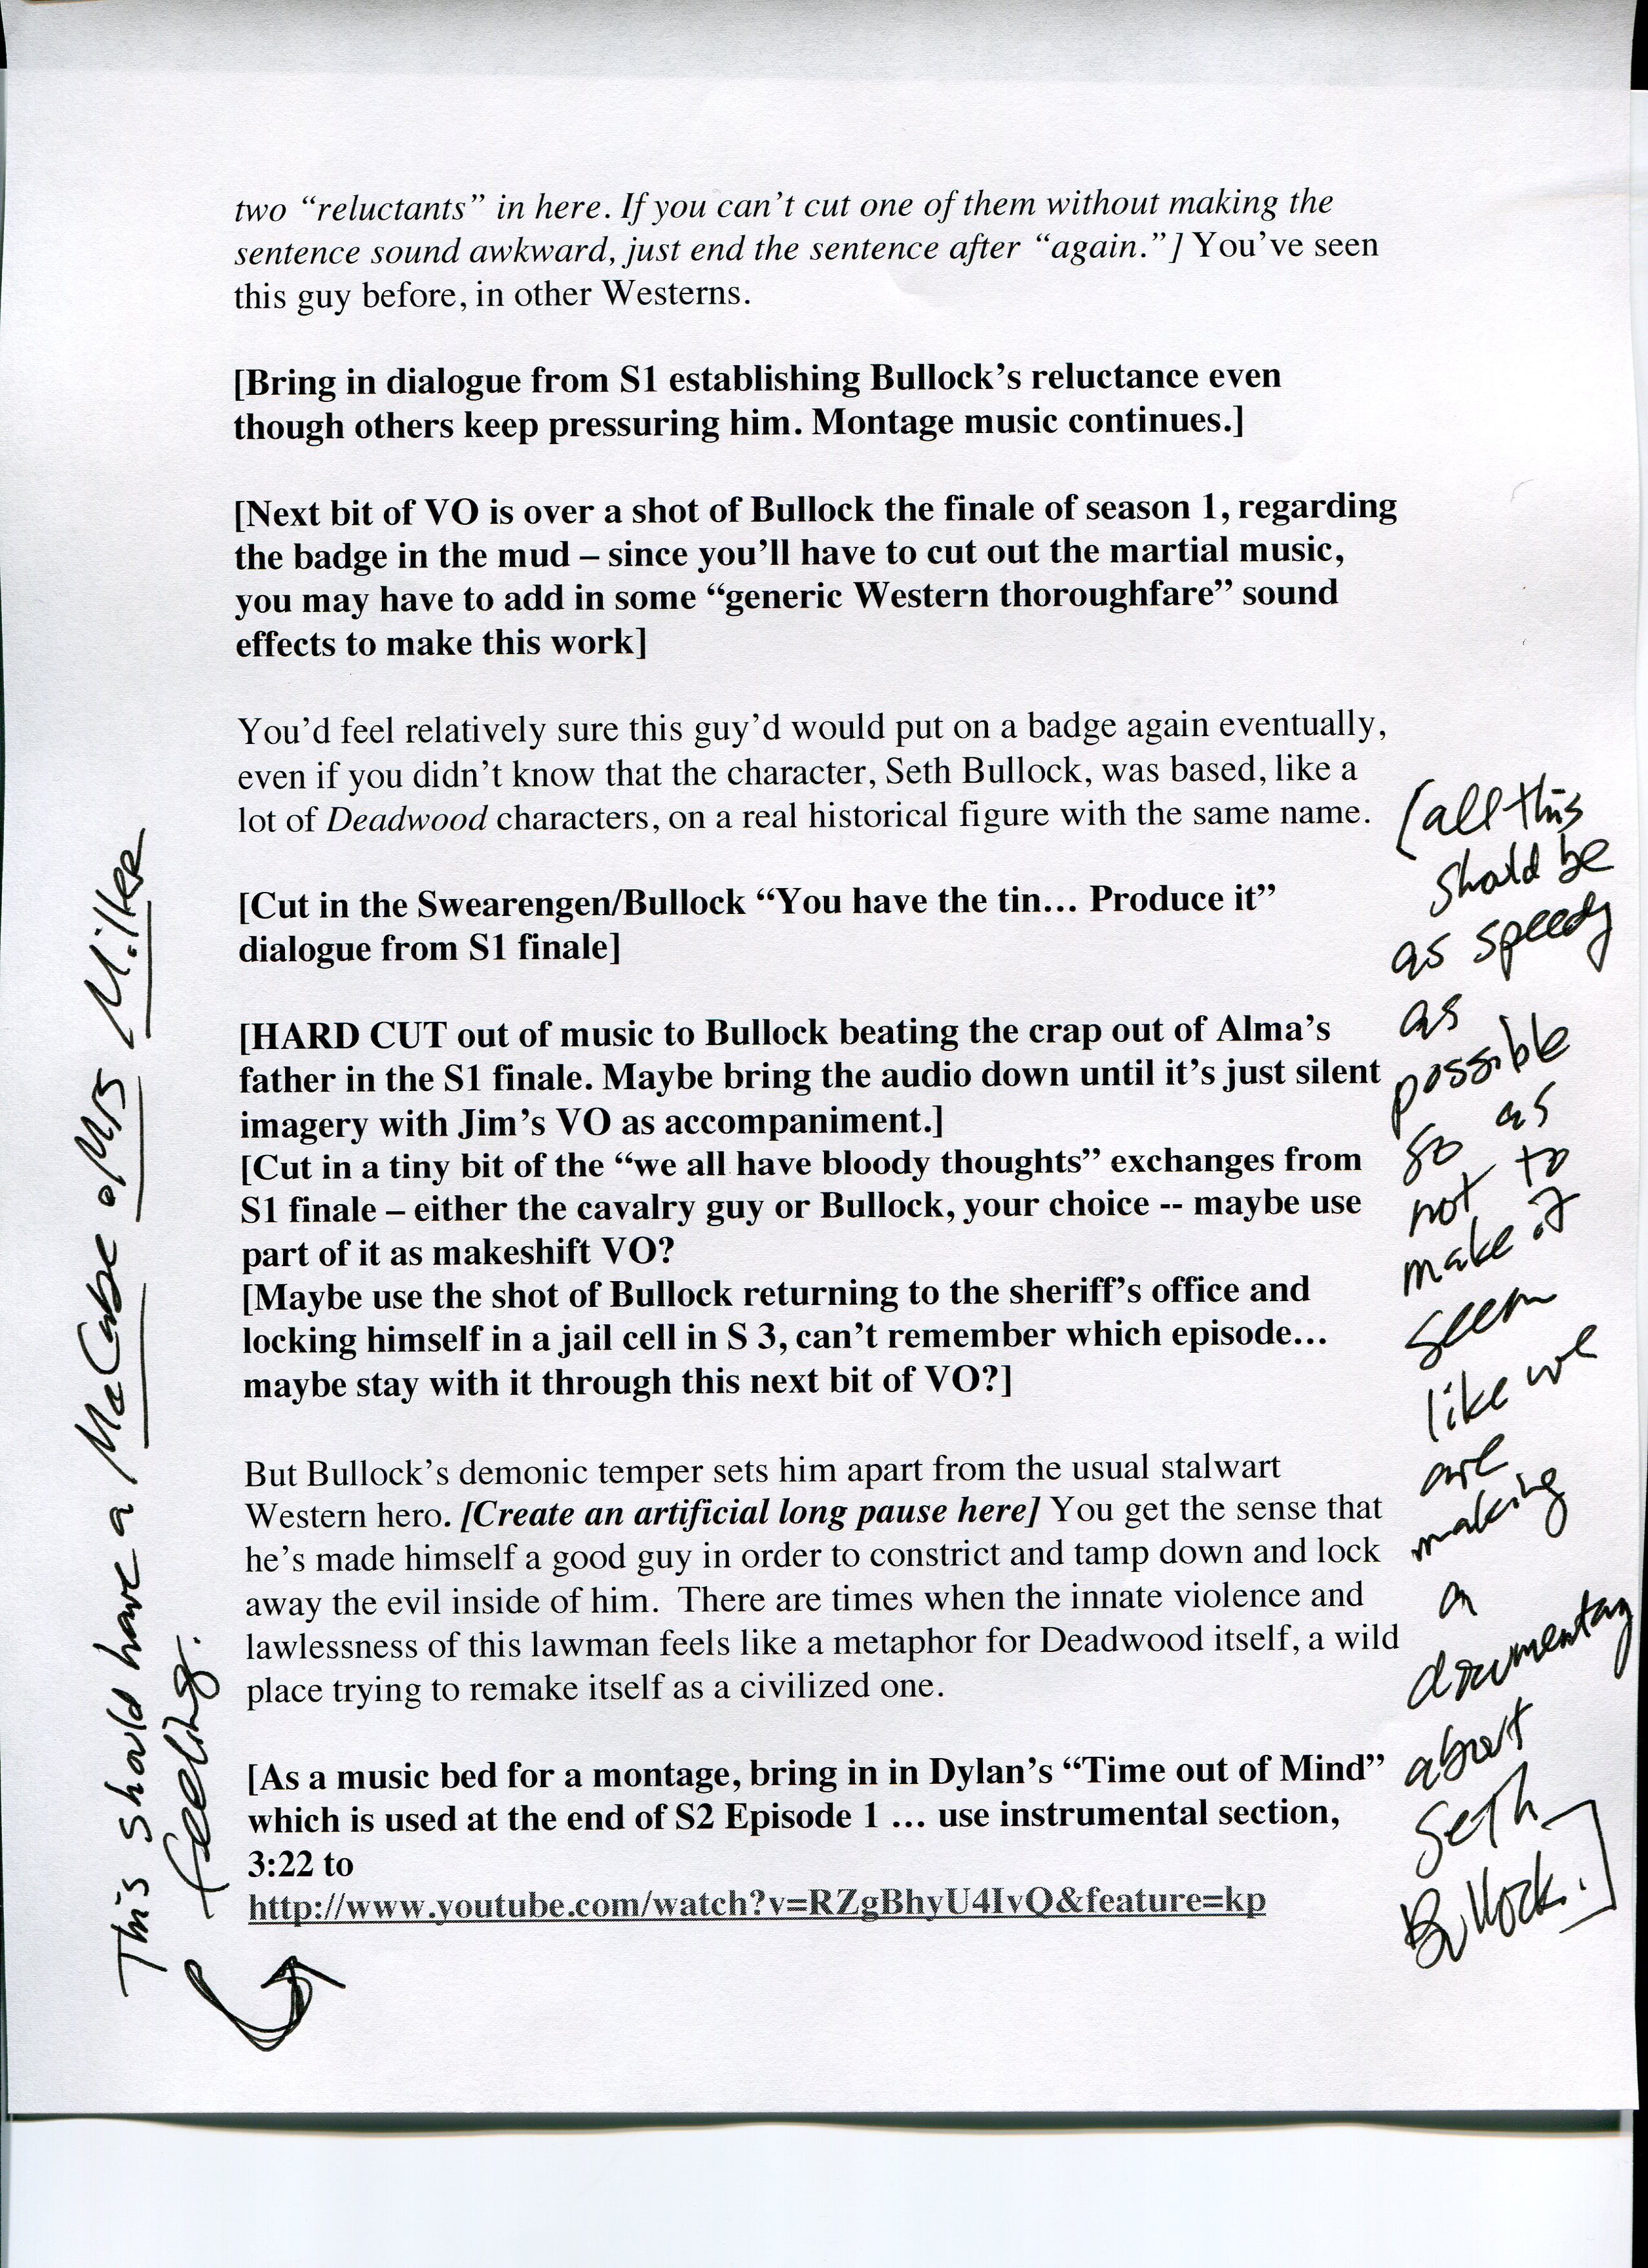 two “reluctants” in here. If you can’t cut one of them without making the
sentence sound awkward, just end the sentence after “again.”] You’ve seen
this guy before, in other Westerns.
[Bring in dialogue from S1 establishing Bullock’s reluctance even
though others keep pressuring him. Montage music continues.]
[Next bit of VO is over a shot of Bullock the finale of season 1, regarding
the badge in the mud – since you’ll have to cut out the martial music,
you may have to add in some “generic Western thoroughfare” sound
effects to make this work]
You’d feel relatively sure this guy’d would put on a badge again eventually,
even if you didn’t know that the character, Seth Bullock, was based, like a
lot of Deadwood characters, on a real historical figure with the same name.
[Cut in the Swearengen/Bullock “You have the tin… Produce it”
dialogue from S1 finale]
[HARD CUT out of music to Bullock beating the crap out of Alma’s
father in the S1 finale. Maybe bring the audio down until it’s just silent
imagery with Jim’s VO as accompaniment.]
[Cut in a tiny bit of the “we all have bloody thoughts” exchanges from
S1 finale – either the cavalry guy or Bullock, your choice -- maybe use
part of it as makeshift VO?
[Maybe use the shot of Bullock returning to the sheriff’s office and
locking himself in a jail cell in S 3, can’t remember which episode…
maybe stay with it through this next bit of VO?]
But Bullock’s demonic temper sets him apart from the usual stalwart
Western hero. [Create an artificial long pause here] You get the sense that
he’s made himself a good guy in order to constrict and tamp down and lock
away the evil inside of him.  There are times when the innate violence and
lawlessness of this lawman feels like a metaphor for Deadwood itself, a wild
place trying to remake itself as a civilized one.
[As a music bed for a montage, bring in in Dylan’s “Time out of Mind”
which is used at the end of S2 Episode 1 … use instrumental section,
3:22 to
http://www.youtube.com/watch?v=RZgBhyU4IvQ&feature=kp
This should have a McCabe & Mrs Miller
feeling.
[all this
should be
as speedy
as
possible
so as
not to
make it
seem
like we
are
making
a
documentary
about
Seth
Bullock.]